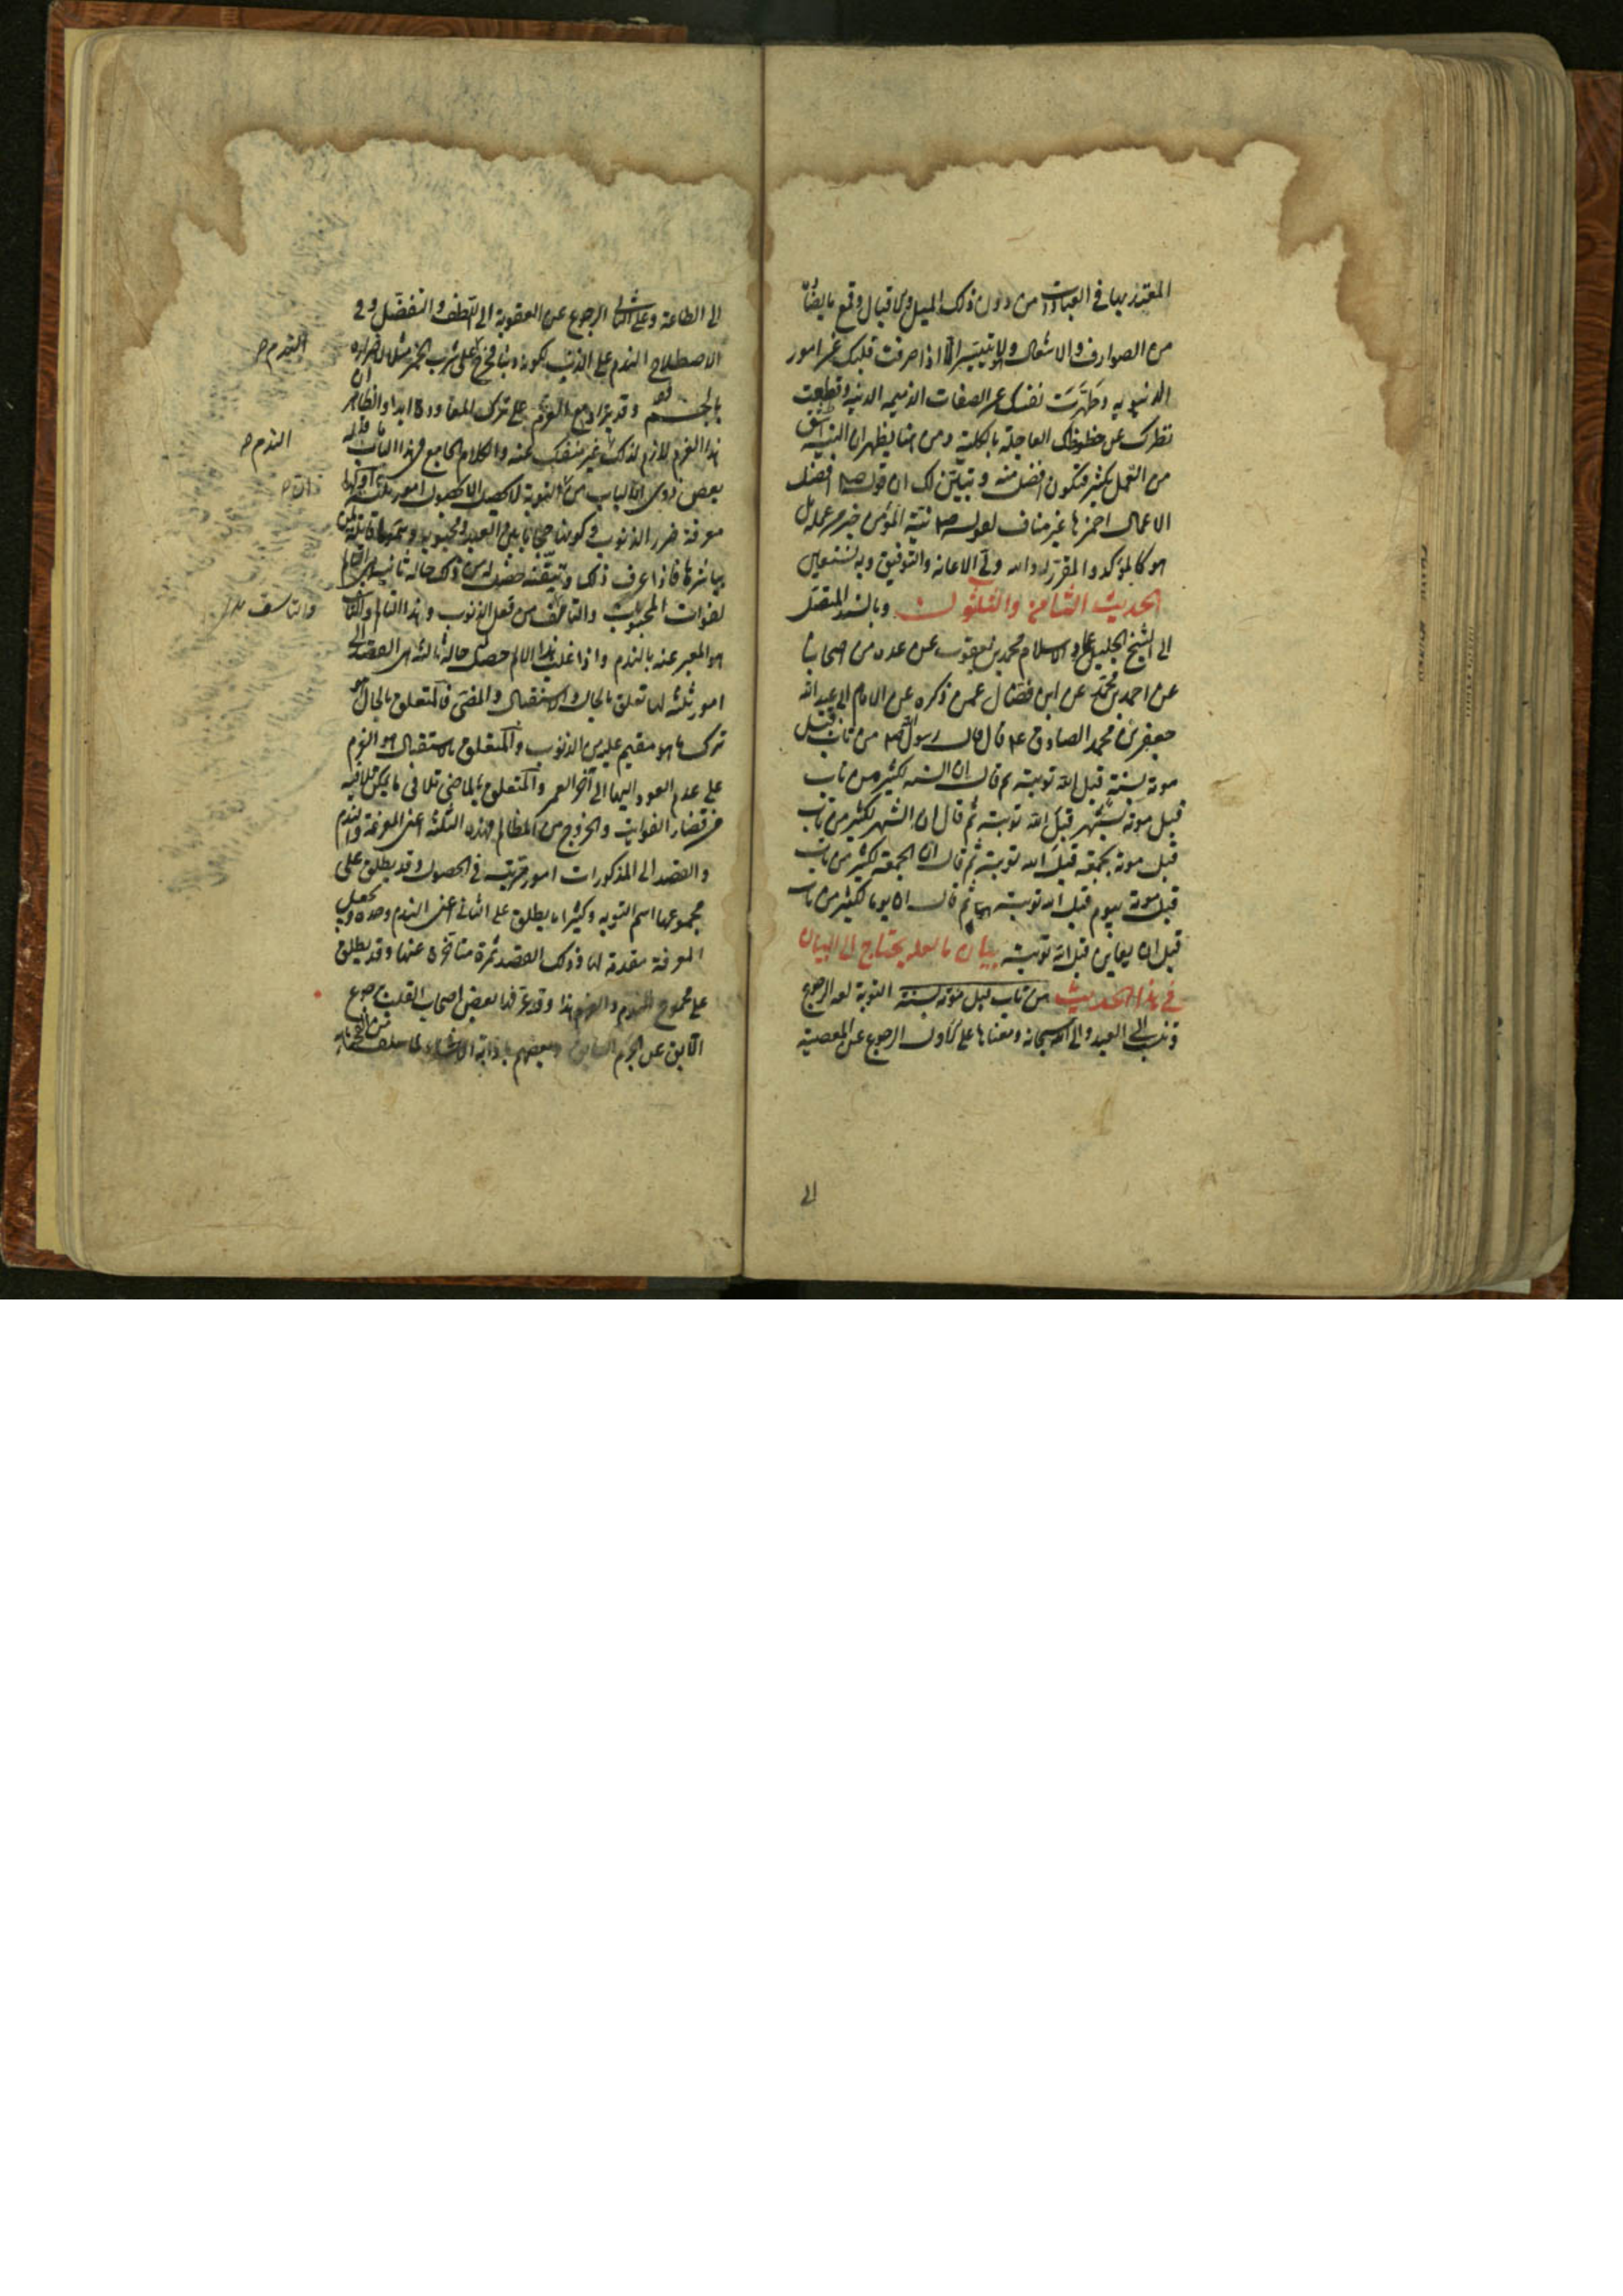 المعتد بها في العبادات من دون ذلك الميل والاقبال وقمع ما يضاده
من الصوارف والاشغال وهو لا يتيسر الا اذا صرفت قلبك عن امور
الدنيويه وطهرت نفسك عن الصفات الذميمه الدنيه وقطعت
نظرك عن حظوظك العاجلة بالكلية ومن هنا يظهر ان النية اشق
من العمل بكثير فتكون افضل منه و تبين لك ان قوله ص افضل
الاعمال احمزها غير مناف لقوله ص نية المؤمن خير من عمله بل
هو كالمؤكد والمقرر له والله ولي الاعانه والتوفيق وبه نستعين
الحديث الثامن والثلثون وبالسند المتصل
الى الشيخ الجليل عماد الاسلام محمد بن يعقوب عن عده من اصحابنا
عن احمد بن محمد عن ابن فضال عمن ذكره عن الامام ابي عبد الله
جعفر بن محمد الصادق ع قال قال رسول الله ص من تاب قبل
موته بسنة قبل الله توبته ثم قال ان السنه لكثير من تاب
قبل موته بشهر قبل الله توبته ثم قال ان الشهر لكثير من تاب
قبل موته بجمعة قبل الله توبته ثم قال ان الجمعة لكثير من تاب
قبل موته بيوم قبل الله توبته ثم قال ان يوما لكثير من تاب
قبل ان يعاين قبل الله توبته بيان ما لعله يحتاج الى البيان
في هذا الحديث من تاب قبل موته بسنة التوبة لغة الرجوع
وتنسب الى العبد والى الله سبحانه ومعناها على الاول الرجوع عن المعصية
الى
الى الطاعة وعلى الثاني الرجوع عن العقوبة الى اللطف والتفضل وفي
الاصطلاح الندم على الذنب لكونه ذنبا فخرج الندم على شرب الخمر مثلا لاضراره
بالجسم وقد يزاد مع العزم على ترك المعاودة ابدا والظاهر ان
هذا العزم لازم لذلك غير منفك عنه والكلام الجامع في هذا الباب ما قاله
بعض ذوي الالباب من ان التوبة لا تحصل الا بحصول امور ثلثة اولها
معرفة ضرر الذنوب وكونها حجابا بين العبد ومحبوبه وسموما قاتلة لمن
يباشرها فاذا عرف ذلك وتيقنه حصل له من ذلك حالة ثانيه هي التألم
لفوات المحبوب والتأسف من فعل الذنوب وهذا التألم والتأسف
هو المعبر عنه بالندم واذا غلب هذا الالم حصل حالة ثالثة هي القصد الى
امور ثلثة لها تعلق بالحال والاستقبال والمضي فالمتعلق بالحال هو
ترك ما هو مقيم عليه من الذنوب والمتعلق بالاستقبال هو العزم
على عدم العود اليها الى آخر العمر والمتعلق بالماضي تلافي ما يمكن تلافيه
من قضاء الفوايت والخروج من المظالم فهذه الثلثة اعني المعرفة والندم
والقصد الى المذكورات امور مترتبة في الحصول وقد يطلق على
مجموعها اسم التوبه وكثيرا ما يطلق على الثاني اعني الندم وحده وتجعل
المعرفة مقدمة لها وذلك القصد ثمرة متأخرة عنها وقد يطلق
على مجموع الندم والعزم هذا وقد عرفها بعض اصحاب القلوب برجوع
الآبق عن الجرم السابق وبعضهم باذابة الاحشاء لما سلف من الفحشاء
الندم ص
الندم ص